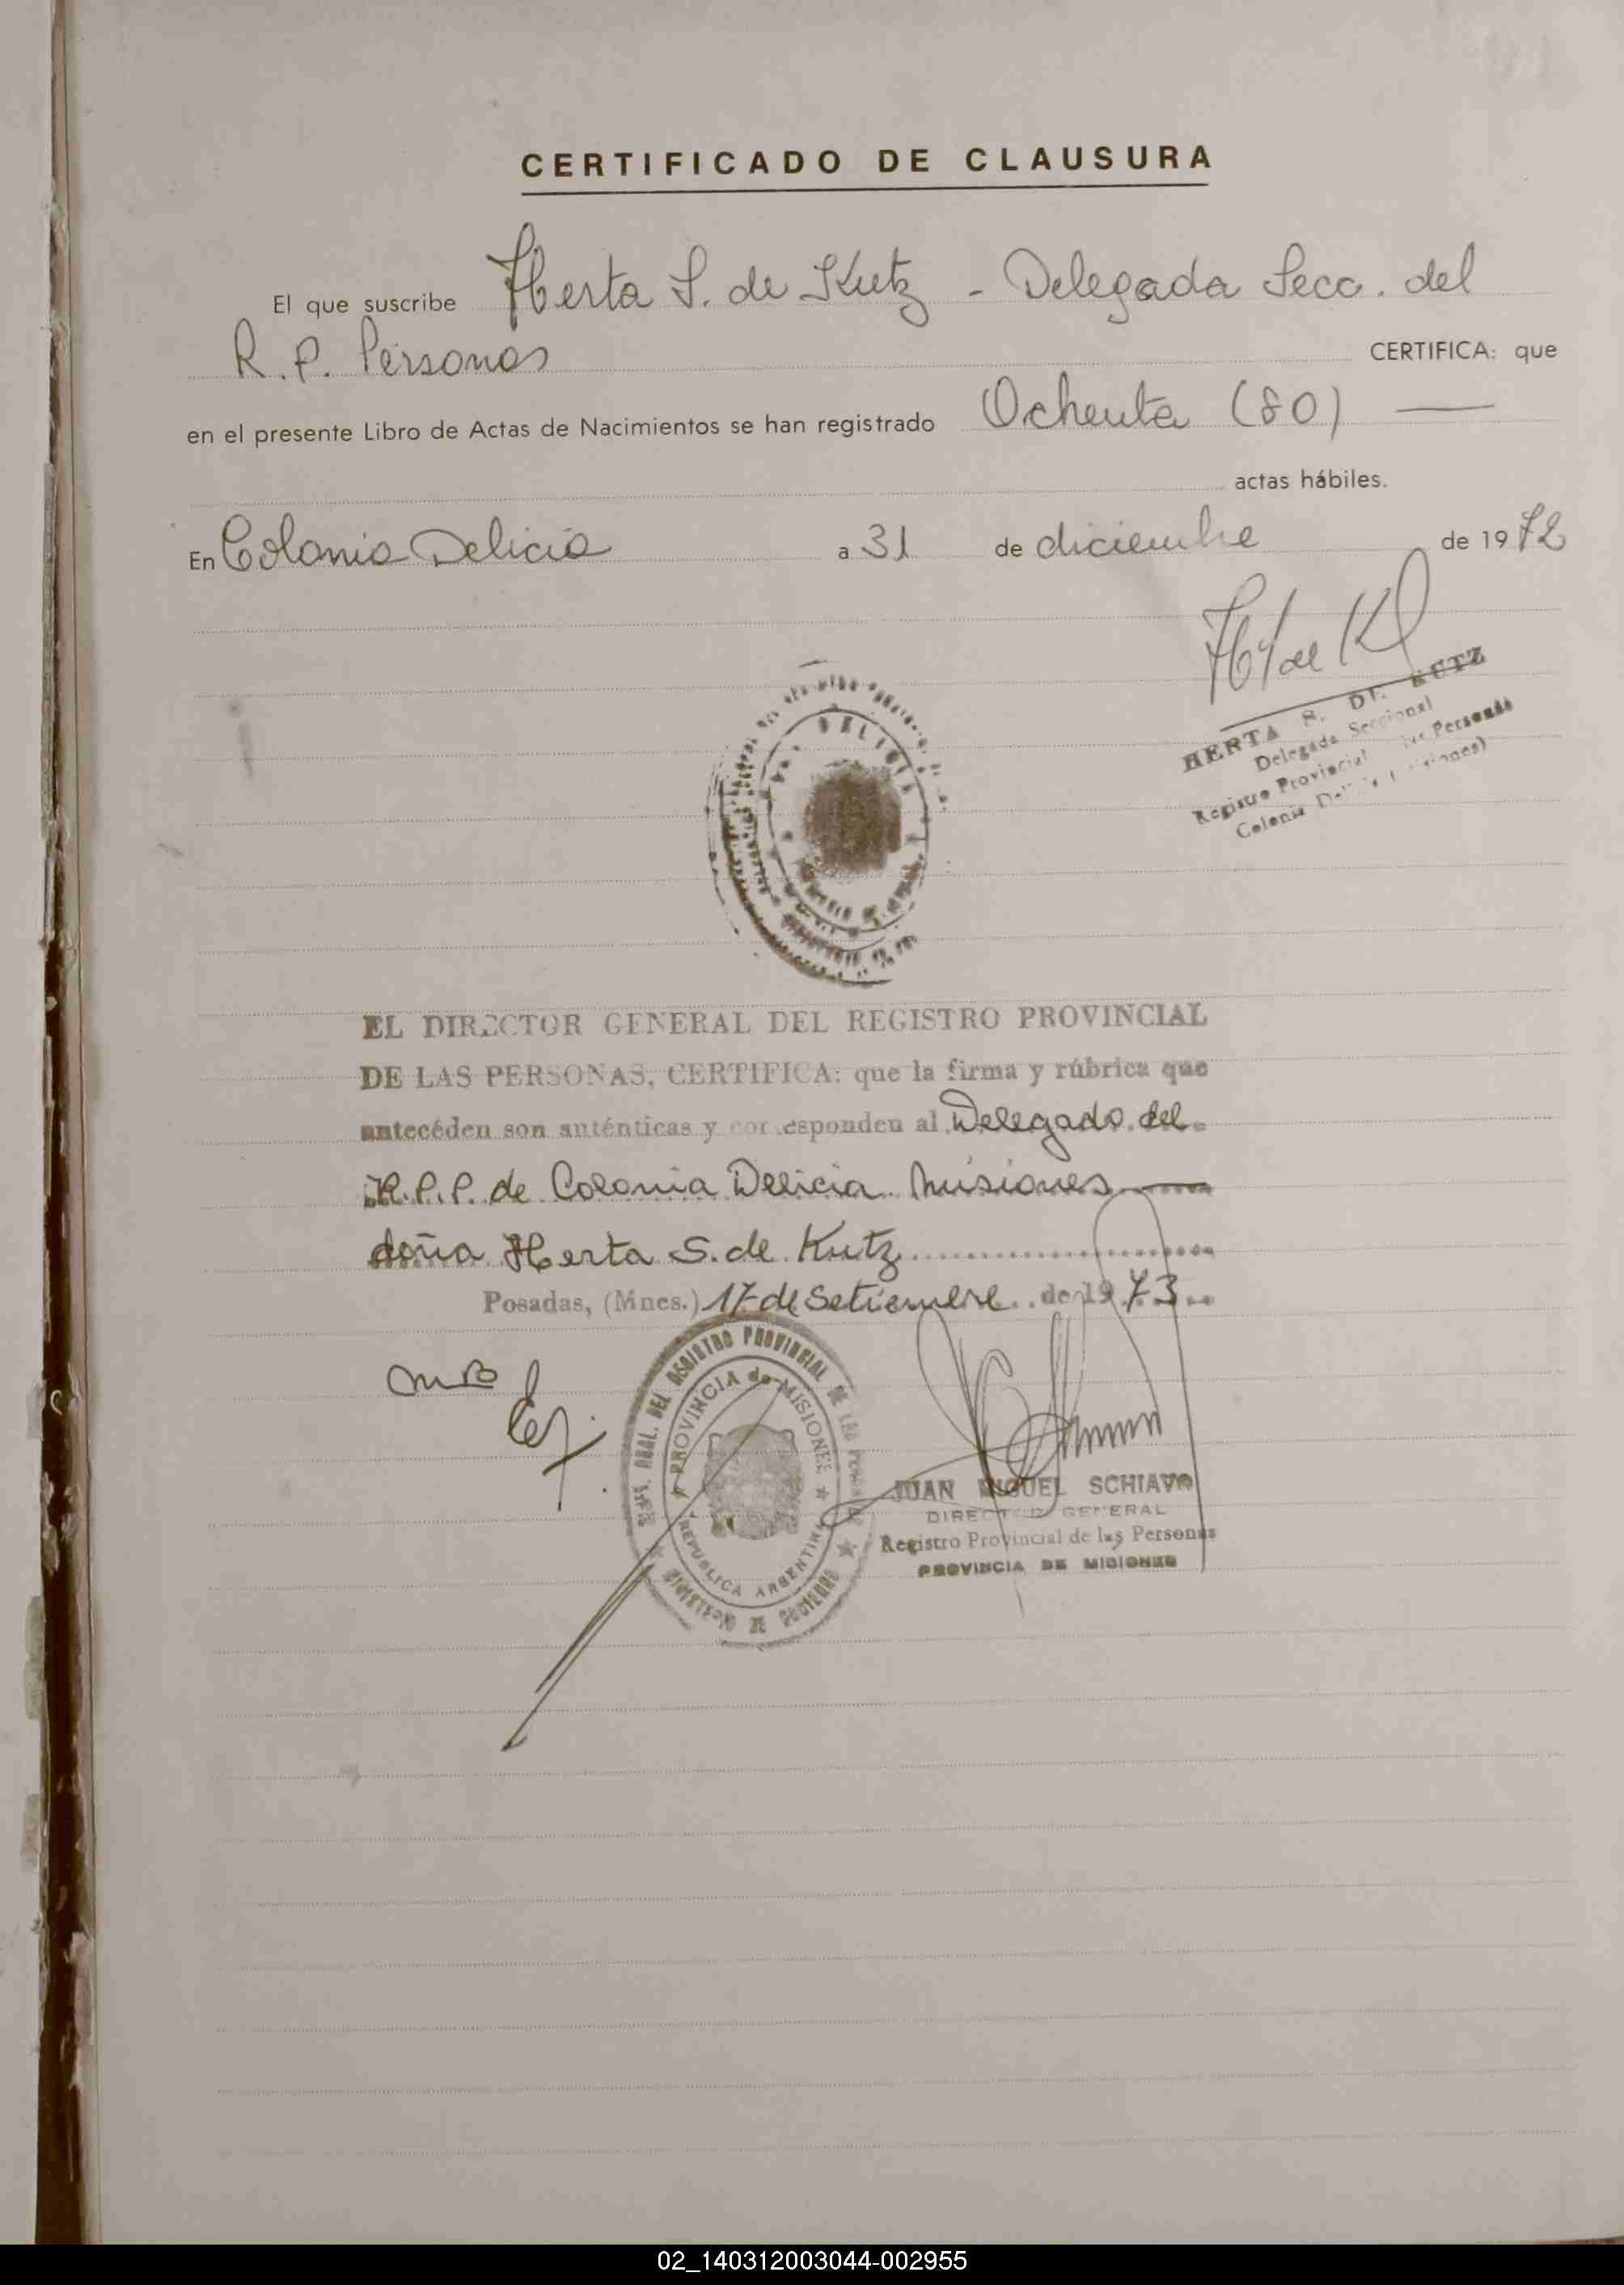 CERTIFICADO DE CLAUSURA
El que suscribe Herta S. de Kutz - Delegada Secc. del
R. P. Personas CERTIFICA: que
en el presente Libro de Actas de Nacimientos se han registrado Ochenta (80) —
actas hábiles.
En Colonia Delicia a 31 de diciembre de 1972
HERTA S. DE KUTZ
Delegada Seccional
Registro Provincial las Personas
Colonia
DELICIA
EL DIRECTOR GENERAL DEL REGISTRO PROVINCIAL
DE LAS PERSONAS, CERTIFICA: que la firma y rúbrica que
antecéden son auténticas y corresponden al Delegado del
R.P.P. de Colonia Delicia Misiones
doña Herta S. de Kutz
Posadas, (Mnes.) 17 de Setiembre de 1973
GRAL. DEL REGISTRO PROVINCIAL DE LAS
PROVINCIA de MISIONES
REPUBLICA ARGENTINA
MINISTERIO DE GOBIERNO
JUAN MIGUEL SCHIAVO
DIRECTOR GENERAL
Registro Provincial de las Personas
PROVINCIA DE MISIONES
02_140312003044-002955